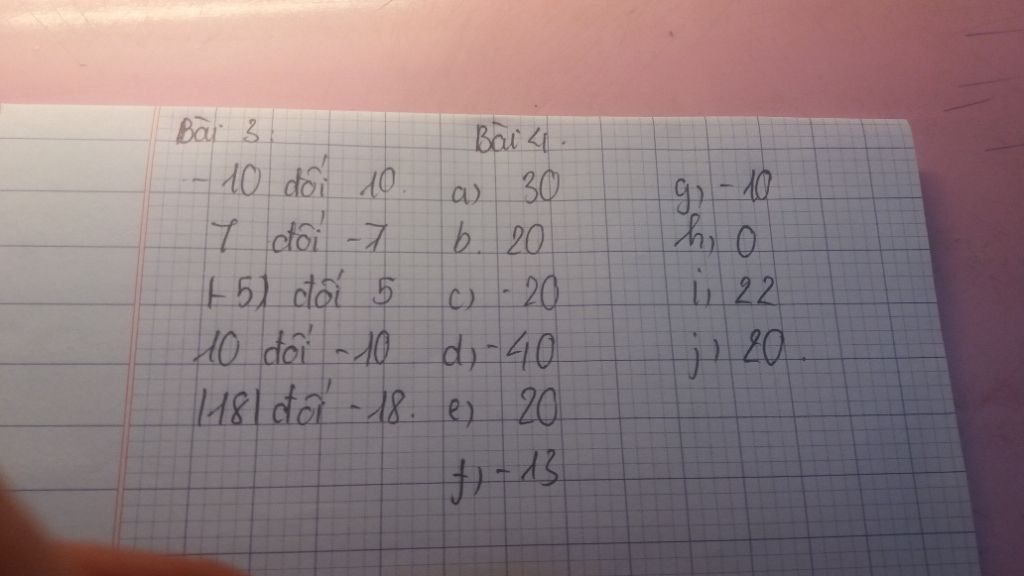 Bài 3.
-10 đối 10.
7 đối -7
|-5| đối 5
10 đối -10
|18| đối -18.
Bài 4.
a) 30
b. 20
c) -20
d) -40
e) 20
f) -13
g) -10
h) 0
i) 22
j) 20.